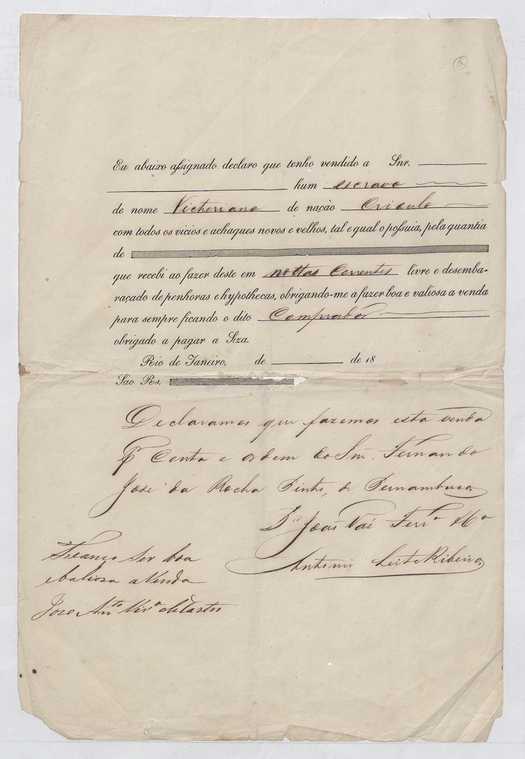 Eu abaixo assignado declaro que tenho vendido a Snr.
hum escravo
de nome Victoriano de nação Crioulo
com todos os vicios e achaques novos e velhos, tal e qual o possuia, pela quantia
de
que recebi ao fazer deste em nottas Correntes livre e desemba-
raçado de penhoras e hypothecas, obrigando-me a fazer boa e valiosa a venda
para sempre ficando o dito Comprador
obrigado a pagar a Siza.
Rio de Janeiro, de de 18
São Rs.
Declaramos que fazemos esta venda
Conta e ordem do Snr. Fernando
José da Rocha Pinto, de Pernambuco
Antonio Leite Ribeiro
Fianço ser boa
evaliosa avenda
Jose